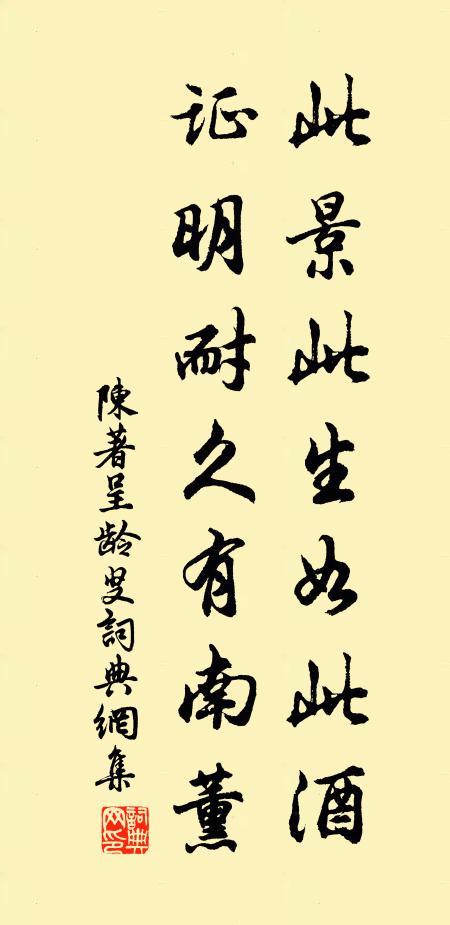 此景此生如此酒
证明耐久有南薰
陳著呈龄叟詞典網集
詞典網印